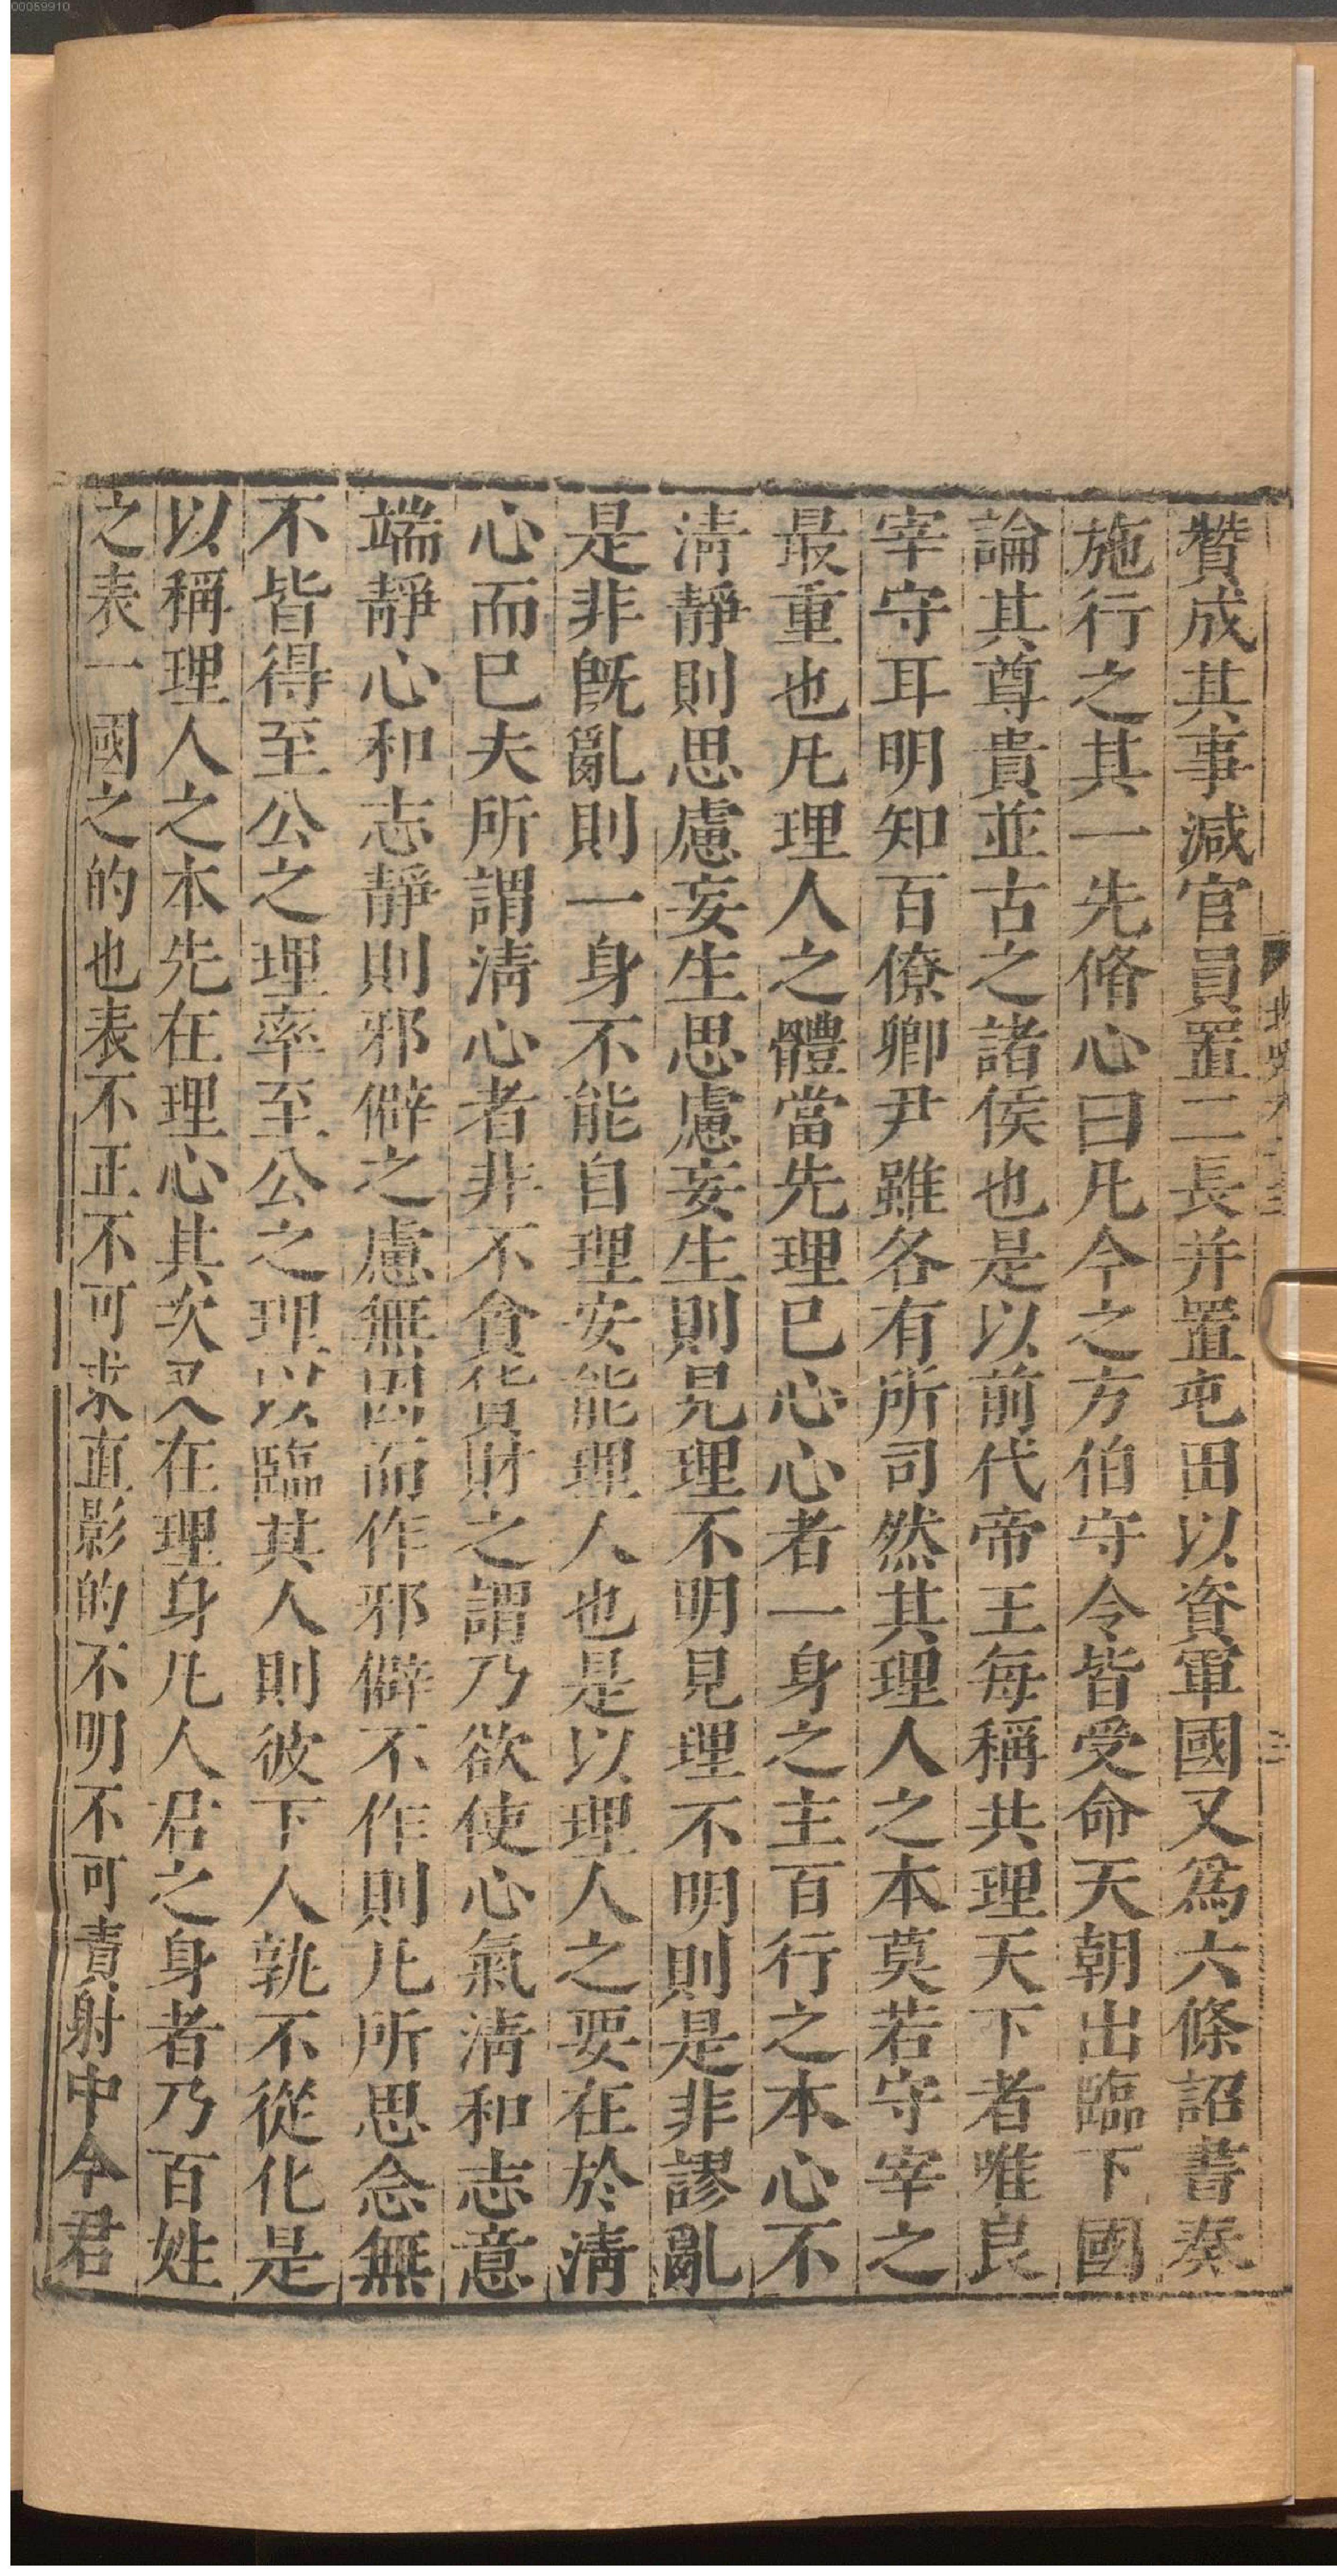 00059910
贊成其事減官員置二長并置屯田以資軍國又爲六條詔書奏
施行之其一先脩心曰凡今之方伯守令皆受命天朝出臨下國
論其尊貴並古之諸侯也是以前代帝王每稱共理天下者唯良
宰守耳明知百僚卿尹雖各有所司然其理人之本莫若守宰之
最重也凡理人之體當先理已心心者一身之主百行之本心不
淸靜則思慮妄生思慮妄生則見理不明見理不明則是非謬亂
是非旣亂則一身不能自理安能理人也是以理人之要在於淸
心而已夫所謂淸心者非不貪貨財之謂乃欲使心氣淸和志意
端靜心和志靜則邪僻之慮無因而作邪僻不作則凡所思念無
不皆得至公之理率至公之理以臨其人則彼下人孰不從化是
以稱理人之本先在理心其次又在理身凡人君之身者乃百姓
之表一國之的也表不正不可求直影的不明不可責射中今君